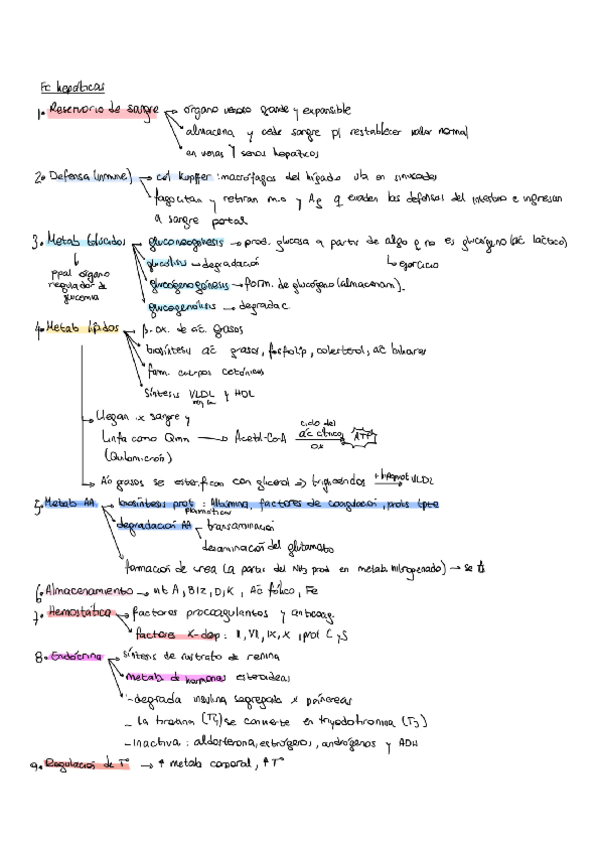 Fc hepáticas
1. Reservorio de sangre → órgano venoso grande y expansible
almacena y cede sangre p/ restablecer valor normal
en venas y senos hepáticos
2. Defensa (inmune) → cél Kupffer : macrófagos del hígado ubi en sinusoides
fagocitan y retiran m.o y Ag q evaden las defensas del intestino e ingresan
a sangre portal
3. Metab Glúcidos → gluconeogénesis → prod. glucosa a partir de algo q no es glucógeno (ác láctico)
↓ ppal órgano regulador de glucemia
glucólisis → degradación ↳ ejercicio
glucogenogénesis → form. de glucógeno (almacenam).
glucogenólisis → degradac.
4. Metab lípidos → β. ox. de ác. grasos
biosíntesis ac grasos, fosfolip, colesterol, ac biliares
form. cuerpos cetónicos
síntesis VLDL y HDL
Llegan x sangre y
Linfa como Qmn → Acetil-CoA ciclo del ác cítrico ox → ATP
(Quilomicrón)
Ac grasos se esterifican con glicerol ⇒ triglicéridos VLDL
5. Metab AA → biosíntesis prot plasmáticas : Albúmina, factores de coagulación, prots tpte
degradación AA → transaminación
desaminación del glutamato
formación de urea (a partir del NH3 prod en metab. nitrogenado) → se
6. Almacenamiento → vit A, B12, D, K, Ac fólico, Fe
7. Hemostática → factores procoagulantes y anticoag.
factores K-dep : II, VII, IX, X, prot C y S
8. Endócrina → síntesis de sustrato de renina
metab de hormonas esteroideas
- degrada insulina segregada x páncreas
- la tiroxina (T4) se convierte en triyodotironina (T3)
- inactiva : aldosterona, estrógenos, andrógenos y ADH
9. Regulación de T° → ↑ metab corporal, ↑ T°